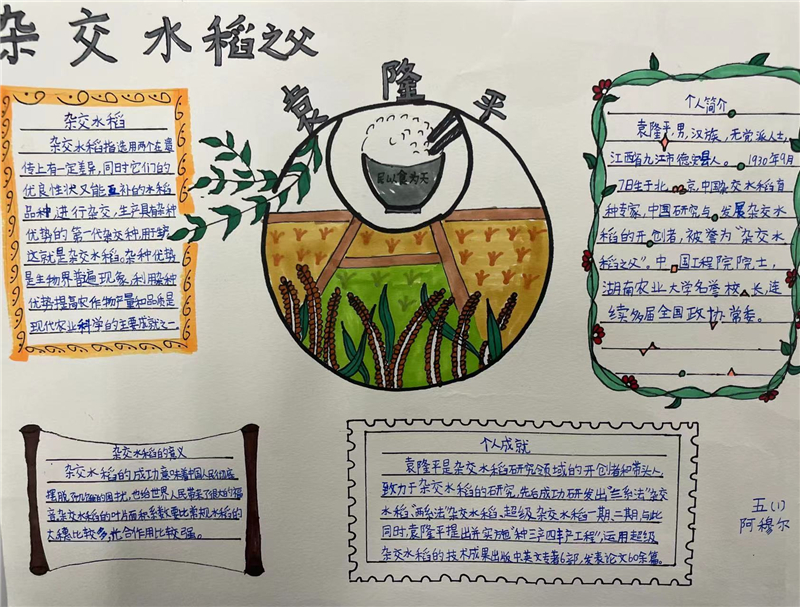 杂交水稻之父
袁隆平
民以食为天
杂交水稻
杂交水稻指选用两个在遗
传上有一定差异,同时它们的
优良性状又能互补的水稻
品种,进行杂交,生产具有杂种
优势的第一代杂交种,用于
这就是杂交水稻。杂种优势
是生物界普遍现象,利用杂种
优势提高农作物产量和品质是
现代农业科学的主要成就之一
个人简介
袁隆平,男,汉族,无党派人士,
江西省九江市德安县人。1930年9月
7日生于北京,中国杂交水稻育
种专家,中国研究与发展杂交水
稻的开创者,被誉为“杂交水
稻之父”。中国工程院院士,
湖南农业大学名誉校长,连
续多届全国政协常委。
杂交水稻的意义
杂交水稻的成功意味着中国人民彻底
摆脱了饥饿的,也给世界人民带来了很大的福
音杂交水稻的叶片面积系数要比常规水稻的
大穗比较多,光合作用比较强。
个人成就
袁隆平是杂交水稻研究领域的开创者和带头人,
致力于杂交水稻的研究,先后成功研发出“三系法”杂交
水稻、“两系法”杂交水稻、超级杂交稻一期、二期,与此
同时,袁隆平提出并实施“种三产四丰产工程”,运用超级
杂交水稻的技术成果,出版中英文专著6部,发表论文60余篇。
五(1)
阿穆尔